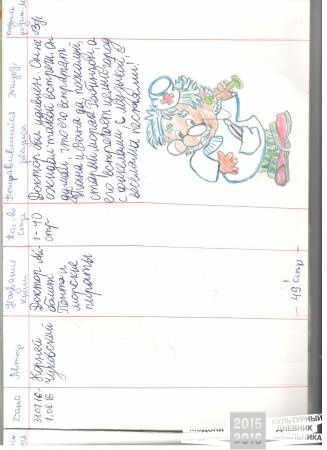 Дата
Автор
Название
книги
Кол-во
стр
Понравившийся эпизод,
рисунок
Подпись
родителей
31.07.16-
1.08.16
Корней
Чуковский
Доктор Ай-
болит
Пента и
морские
пираты
1-40
стр
Доктор был удивлен. Он не
ожидал такой встречи. Он
думал, что его встретят
Таня и Ваня да, пожалуй,
старый моряк Робинзон, а
его встречает целый город
с факелами с музыкой, с
весёлыми песнями!
- 49 стр -
2015
2016
КУЛЬТУРНЫЙ
ДНЕВНИК
ШКОЛЬНИКА